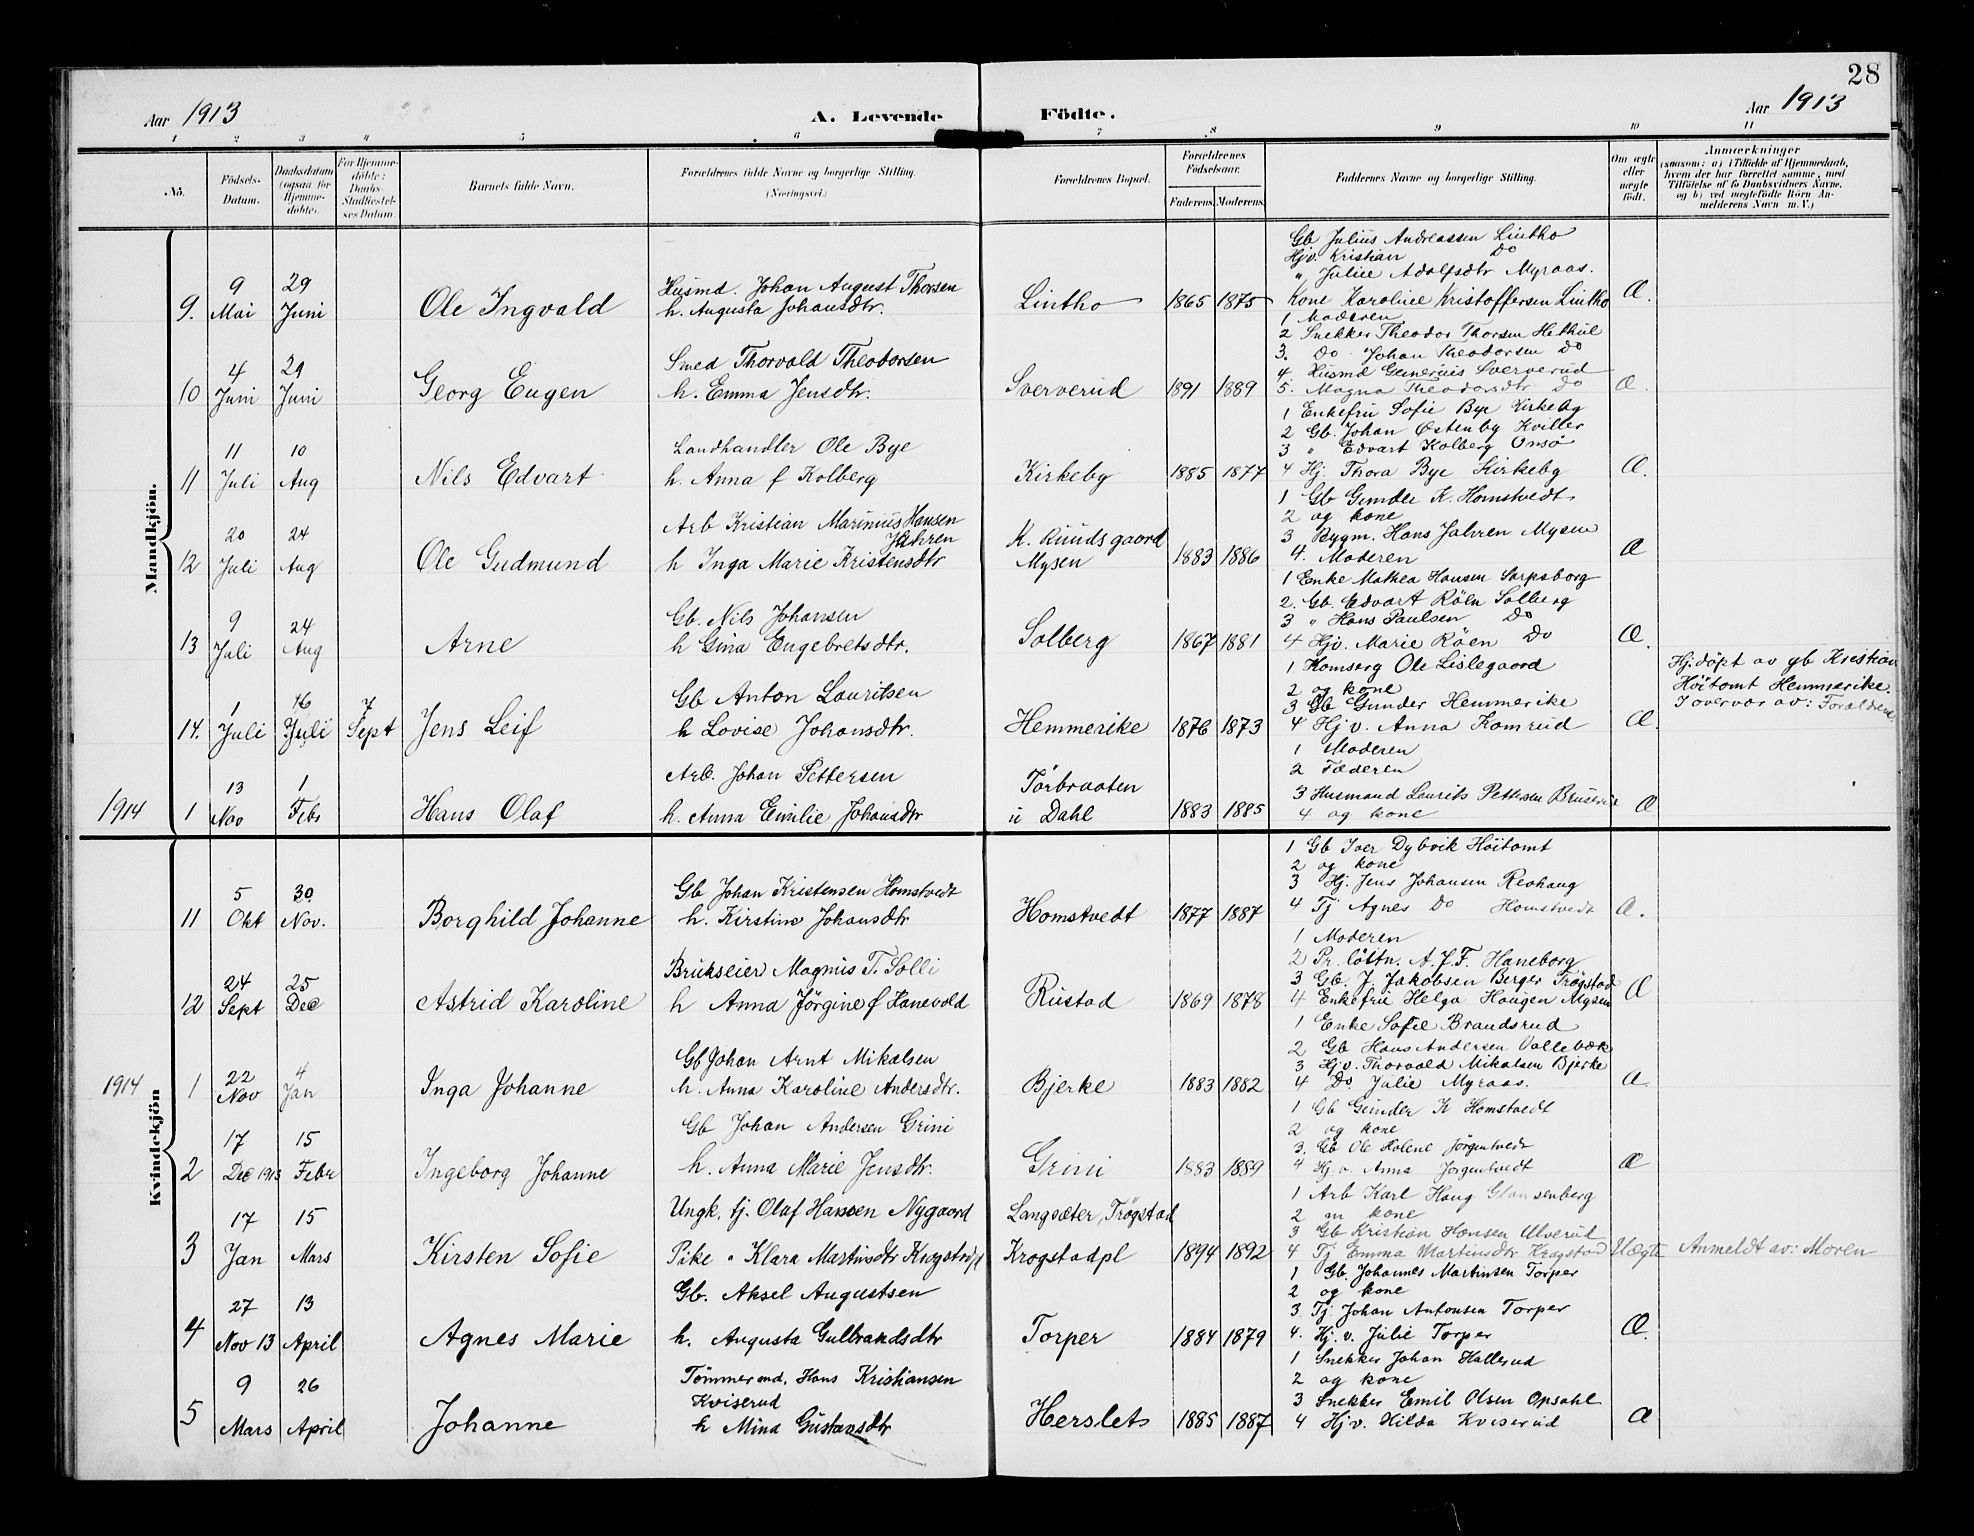 28
Aar 1913
A. Levende Födte.
Aar 1913
1 2 3 4 5 6 7 8 9 10 11
No.
Födsels-Datum.
Daabsdatum (ogsaa for Hjemmedöbte).
For Hjemmedöbte: Daabs-Stadfæstelses Datum
Barnets fulde Navn.
Forældrenes fulde Navne og borgerlige Stilling. (Næringsvei.)
Forældrenes Bopæl.
Forældrenes Födselsaar.
Faderens. Moderens.
Faddernes Navne og borgerlige Stilling.
Om ægte eller uægte födt.
Anmærkninger
(saasom: a) i Tilfælde af Hjemmedaab, hvem der har forrettet samme, med Tilföielse af to Daabsvidners Navne, og b) ved uægtefödte Börn Anmelderens Navn m. V.)
Mandkjön.
9. 9 Mai 29 Juni Ole Ingvald
Husmd. Johan August Thorsen
h. Augusta Johansdtr.
Lintho 1865 1875
Gb Julius Andreassen Lintho
Hjv. Kristian Do
" Julie Adolfsdtr Myraas.
Kone Karoline Kristoffersen Lintho
Æ.
10 4 Juni 29 Juni Georg Eugen
Smed Thorvald Theodorsen
h. Emma Jensdtr.
Sververud 1891 1889
1 Moderen
2 Snekker Theodor Thorsen
3. Do Johan Theodorsen Do
4 Husmd Sververud
5. Magna Theodorsdtr Do
Æ.
11 11 Juli 10 Aug Nils Edvart
Landhandler Ole Bye
h. Anna f Kolberg
Kirkeby 1885 1877
1 Enkefru Sofie Bye Kirkeby
2 Gb. Johan Østenby Kviller
3 " Edvart Kolberg Onsø
4 Hj. Thora Bye Kirkeby
Æ.
12 20 Juli 24 Aug Ole Gudmund
Arb Kristian Marinius Hansen Jahren
h Inga Marie Kristensdtr
K. Ruudsgaard Mysen 1883 1886
1 Gb Gunder K. Homstvedt
2 og kone
3 Bygm. Hans Jahren Mysen
4. Moderen
Æ
13 9 Juli 24 Aug Arne
Gb. Nils Johansen
h Gina Engebretsdtr.
Solberg 1867 1881
1 Enke Mathea Hansen Sarpsborg
2. Gb. Edvart Röen Solberg
3 " Hans Paulsen Do
4 Hjv. Marie Röen Do
Æ.
14. 1 Juli 16 Juli 7 Sept Jens Leif
Gb Anton Lauritsen
h Lovise Johansdtr.
Hemmerike 1876 1873
1 Ole Lislegaard
2 og kone
3 Gb Gunder Hemmerike
4 Hjv. Anna Komrud
Æ.
Hj.döpt av gb Kristian
Höitomt Hemmerike.
I overvær av: Forældrene
1914 1 13 Nov 1 Febr Hans Olaf
Arb. Johan Pettersen
h. Anna Emilie Johansdtr
Törbraaten i Dahl 1883 1885
1 Moderen
2 Faderen
3 Husmand Laurits Pettersen
4 og kone
Æ
Kvindekjön
11 5 Okt 30 Nov. Borghild Johanne
Gb Johan Kristensen Homstvedt
h. Kirstine Johansdtr
Homstvedt 1877 1887
1 Gb Iver Dybvik Höitomt
2 og kone
3 Hj. Jens Johansen Reohaug
4 Tj Agnes Do Homstvedt
Æ.
12 24 Sept 25 Dec Astrid Karoline
Brukseier Magnus T. Solli
h Anna Jörgine f Hanevold
Rustad 1869 1878
1 Moderen
2 Pr. löitn. A. F. F. Haneborg
3 Gb. J. Jakobsen Berger Trögstad
4 Enkefru Helga Haugen Mysen
Æ
1914 1 22 Nov 4 Jan Inga Johanne
Gb Johan Arnt Mikalsen
h. Anna Karoline Andersdtr.
Bjerke 1883 1882
1 Enke Sofie Brandsrud
2 Gb Hans Andersen Vollebæk
3 Hjv. Thorvald Mikalsen Bjerke
4 Do Julie Myraas.
Æ
2 17 Dec 1913 15 Febr Ingeborg Johanne
Gb Johan Andersen Grini
h. Anna Marie Jensdtr.
Grini 1883 1889
1 Gb Gunder K Homstvedt
2 og kone
3. Gb Ole Holene Jörgentvedt
4 Hj.v. Anna Jörgentvedt
Æ
3 17 Jan 15 Mars Kirsten Sofie
Ungk. tj. Olaf Hansen Nygaard
Pike " Klara Martinsdtr Krogstadpl
Langsæter, Trögstad
Krogstadpl 1894 1892
1 Arb Karl Haug Glansenberg
2 m kone
3 Gb Kristian Hansen Ulverud
4 Tj Emma Martinsdtr Krogstad
Uægte Anmeldt av: Moren
4 27 Nov 13 13 April Agnes Marie
Gb. Aksel Augustsen
h. Augusta Gulbrandsdtr
Torper 1884 1879
1 Gb. Johannes Martinsen Torper
2 og kone
3. Tj Johan Antonsen Torper
4. Hj.v. Julie Torper
Æ.
5 9 Mars 26 April Johanne
Tömmermd. Hans Kristiansen Kviserud
h Mina Gustavsdtr
Herslets 1885 1887
1 Snekker Johan Hallerud
2 og kone
3 Snekker Emil Olsen Opsahl
4 Hjv. Hilda Kviserud
Æ